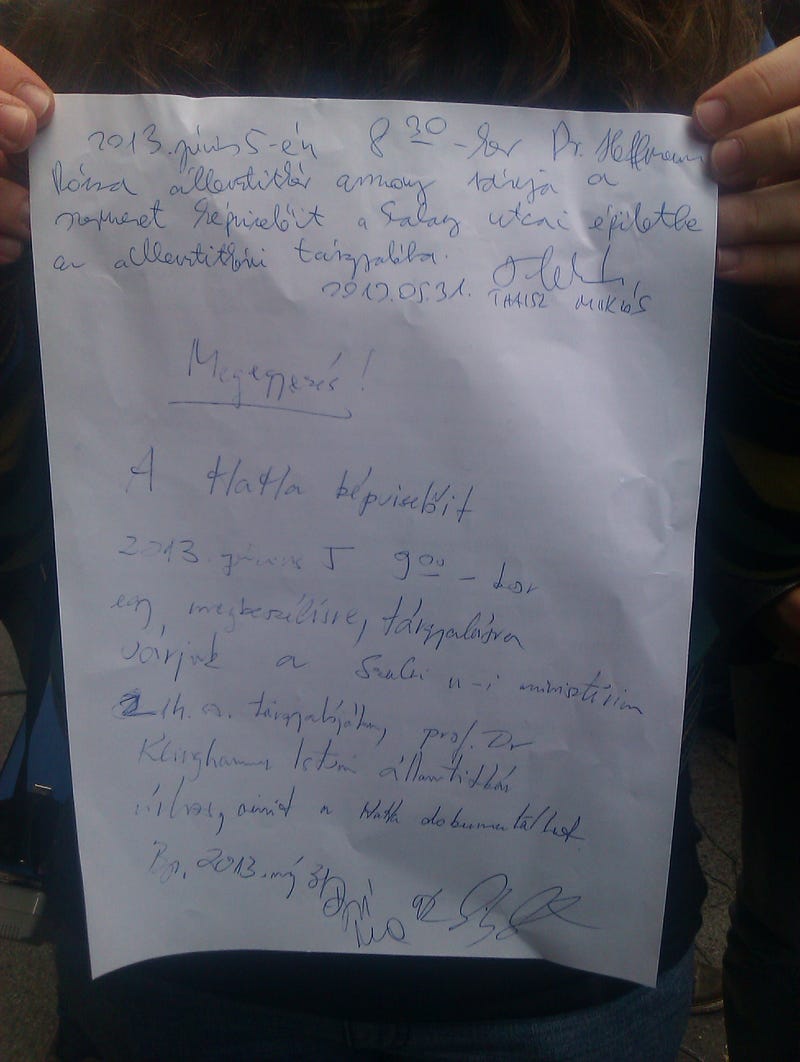 2013. június 5-én 8 30-kor Dr. Hoffmann
Rózsa államtitkár asszony várja a
képviselőit a Szalay utcai épületbe
az államtitkári tárgyalóba.
2013.05.31. THAISZ MIKLÓS
Megegyezés!
A HaHa képviselőit
2013. június 5 9 00 - kor
egy megbeszélésre, tárgyalásra
várjuk a Szalai u-i minisztérium
2 ih. em. tárgyalójában, prof. Dr
Klinghammer István államtitkár
a HaHa dokumentálhat.
Bp. 2013. máj 31